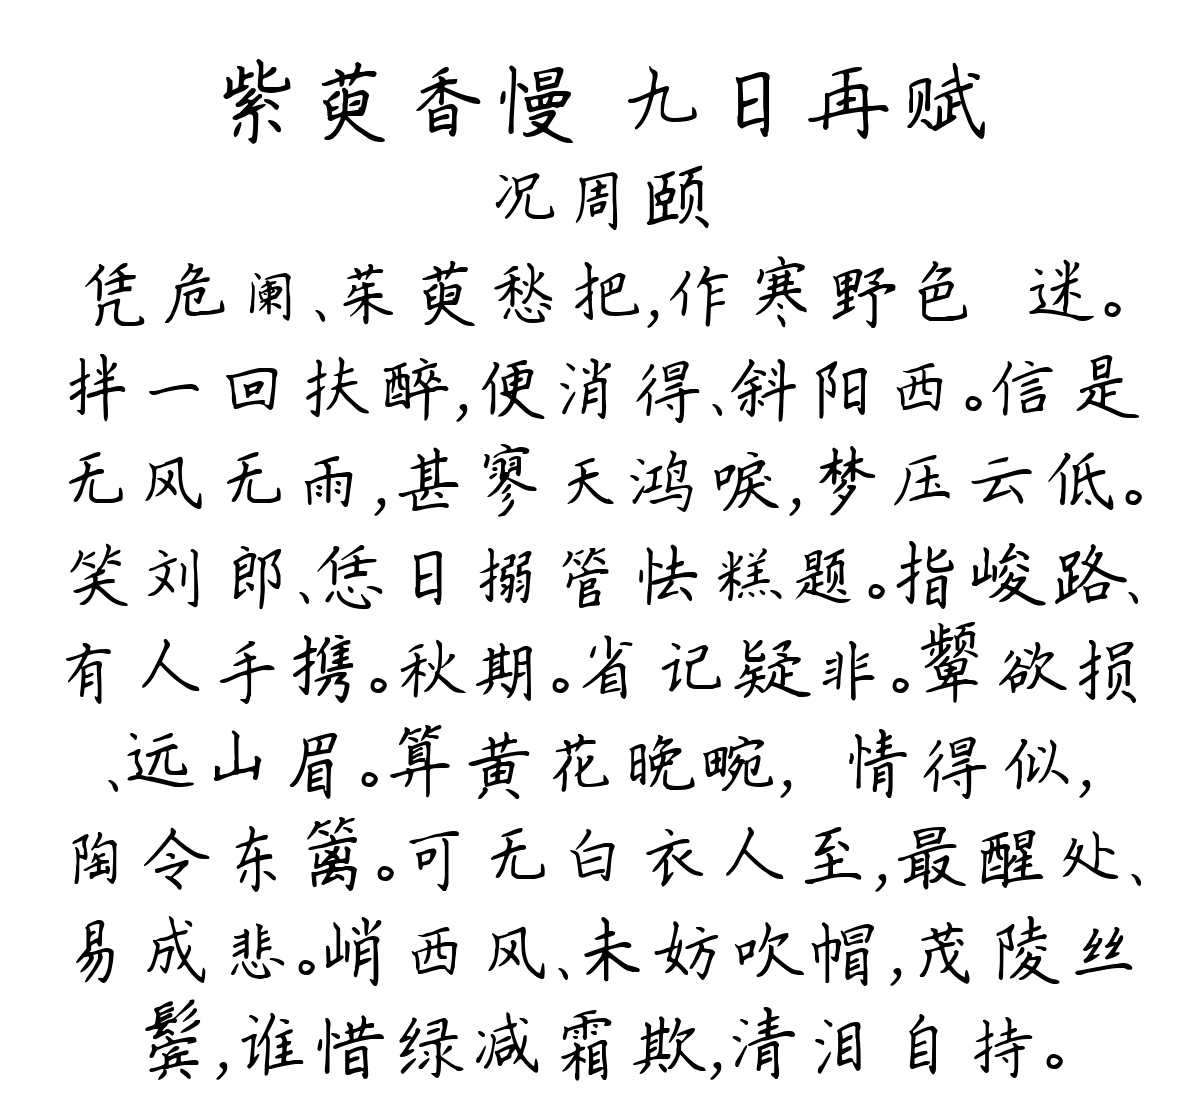 紫萸香慢 九日再赋
况周颐
凭危阑、茱萸愁把,作寒野色 迷。
拌一回扶醉,便消得、斜阳西。信是
无风无雨,甚寥天鸿唳,梦压云低。
笑刘郎、恁日搦管怯糕题。指峻路、
有人手携。秋期。省记疑非。颦欲损
、远山眉。算黄花晚畹, 情得似,
陶令东篱。可无白衣人至,最醒处、
易成悲。峭西风、未妨吹帽,茂陵丝
鬓,谁惜绿减霜欺,清泪自持。